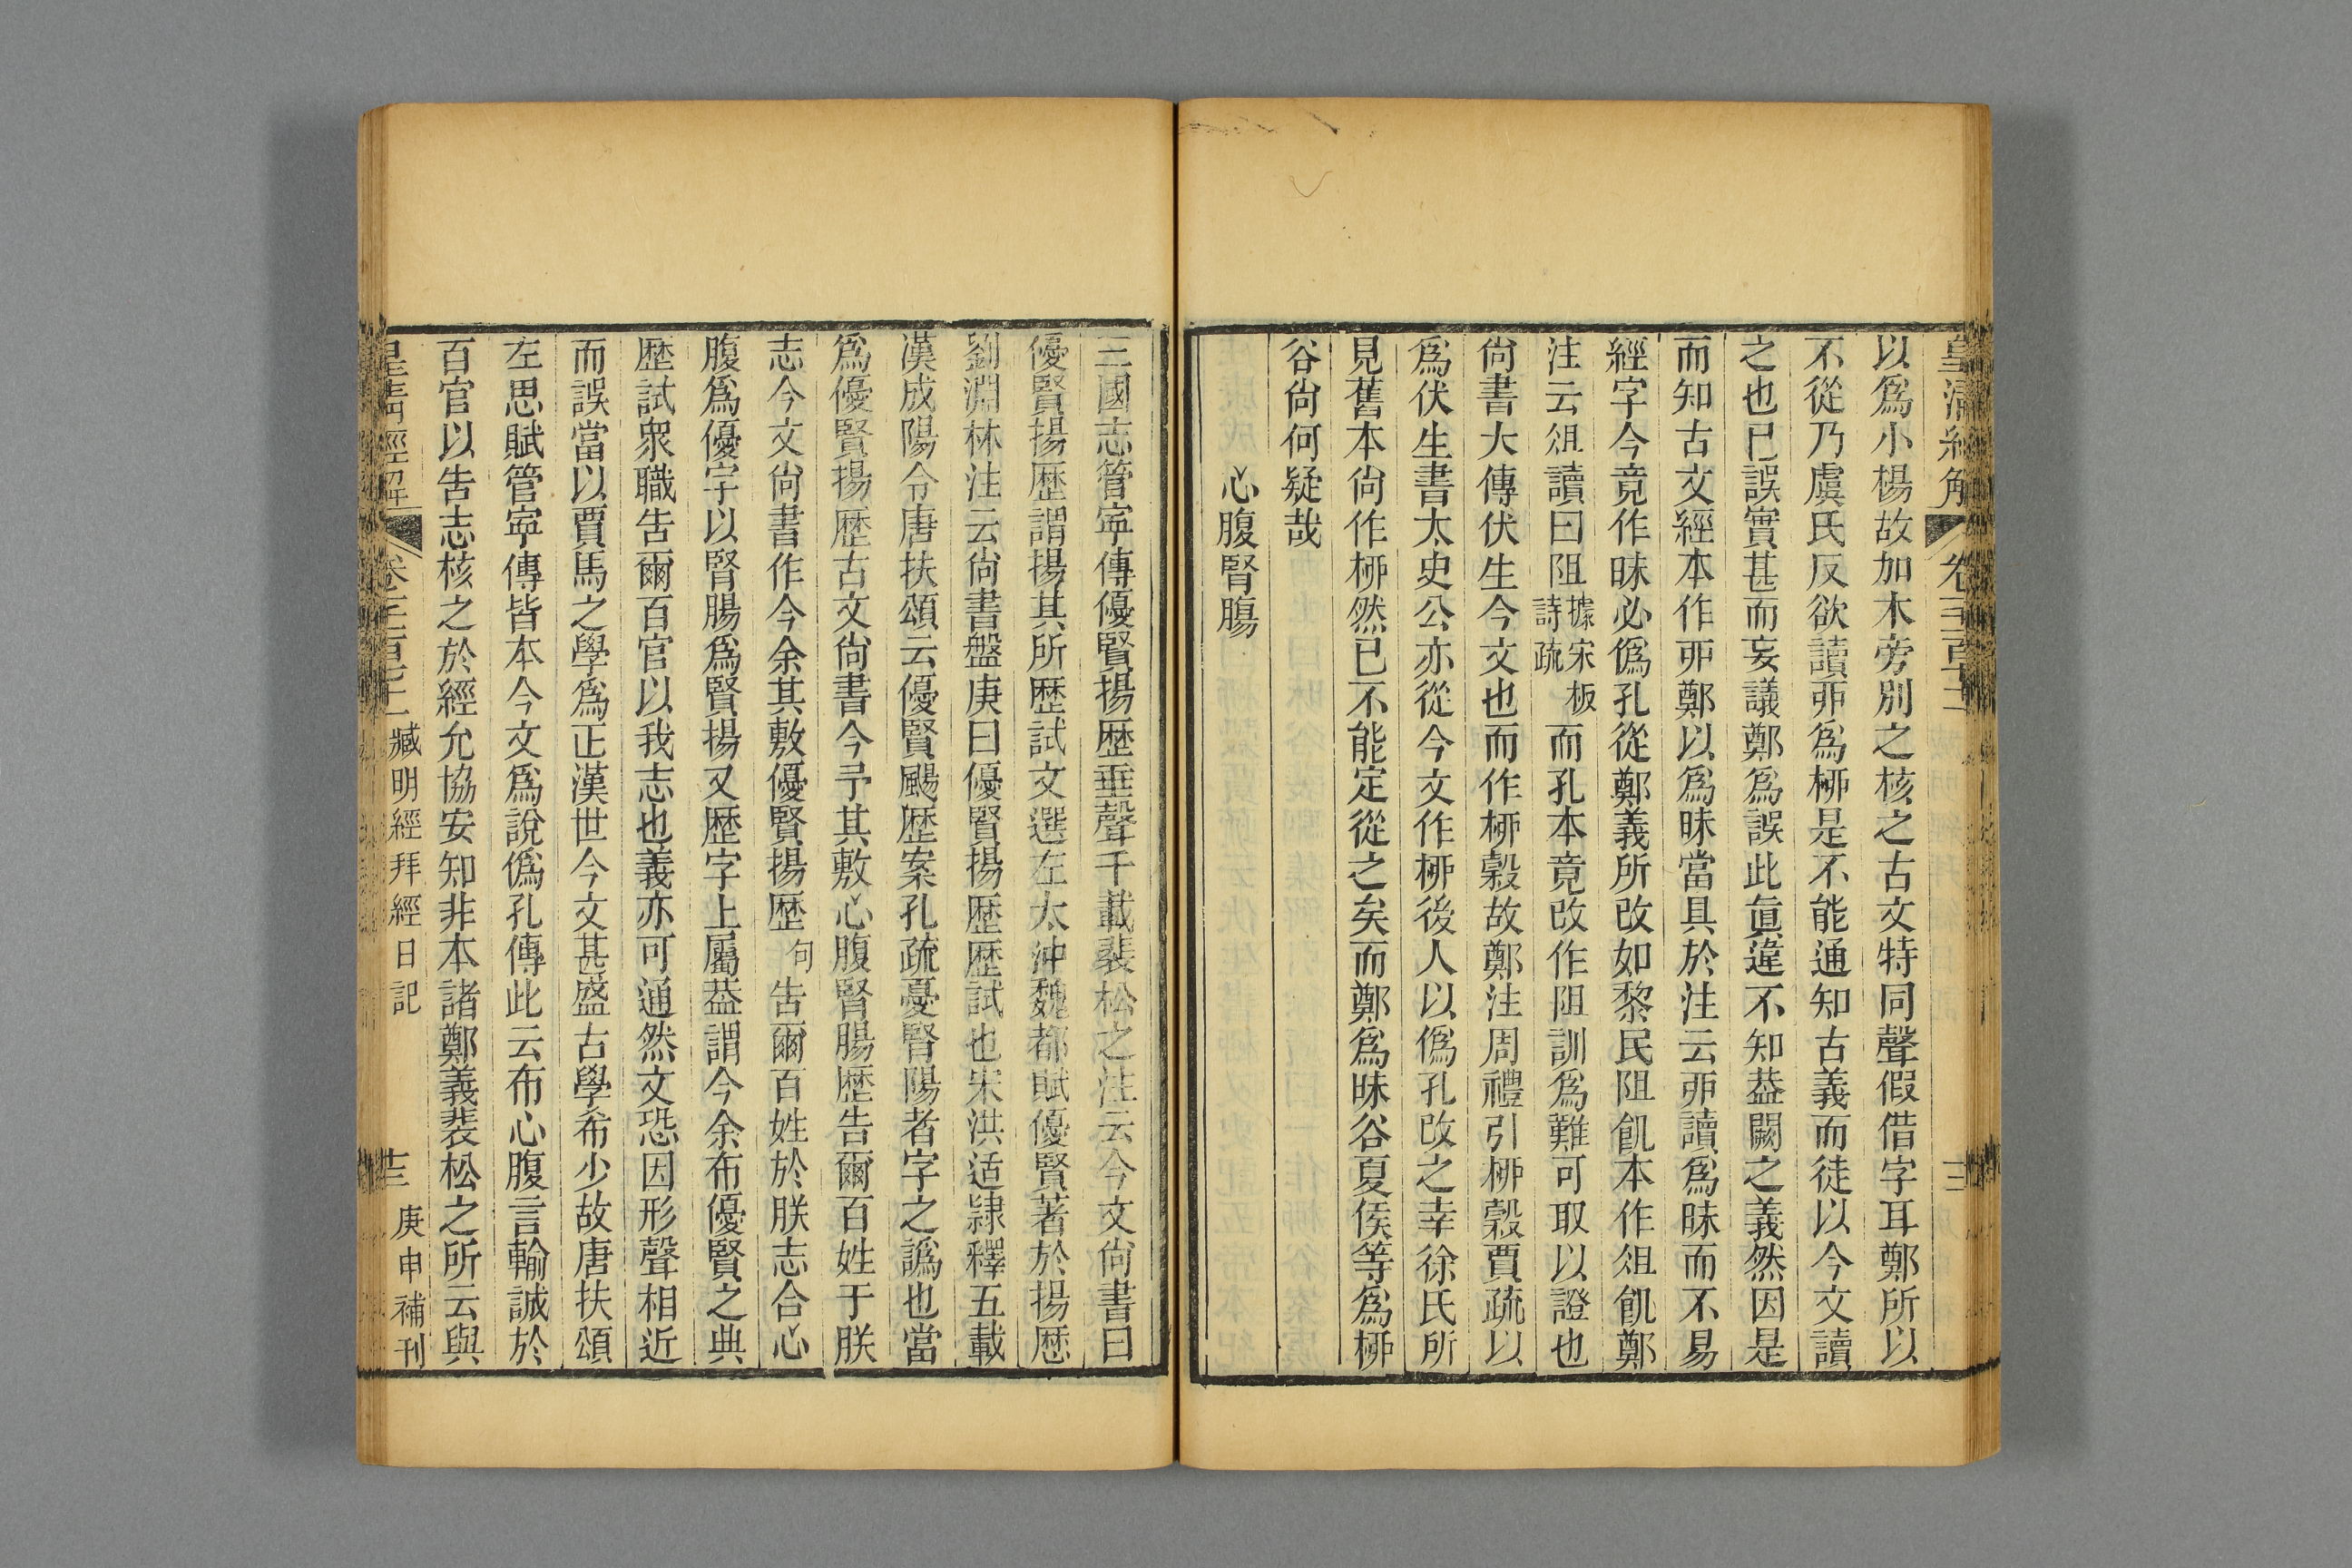 皇清經解 卷千一百七十一
以爲小楊故加木旁別之核之古文特同聲假借字耳鄭所以
不從乃虞氏反欲讀丣爲桺是不能通知古義而徒以今文讀
之也已誤實甚而妄議鄭爲誤此眞違不知葢闕之義然因是
而知古文經本作丣鄭以爲昧當具於注云丣讀爲昧而不易
經字今竟作昧必僞孔從鄭義所改如黎民阻飢本作俎飢鄭
注云俎讀曰阻據宋板詩疏而孔本竟改作阻訓爲難可取以證也
尙書大傳伏生今文也而作桺糓故鄭注周禮引桺糓賈疏以
爲伏生書太史公亦從今文作桺後人以僞孔改之幸徐氏所
見舊本尙作桺然已不能定從之矣而鄭爲昧谷夏侯等爲桺
谷尙何疑哉
心腹腎腸
三國志管寧傳優賢揚歷垂聲千載裴松之注云今文尙書曰
優賢揚歷謂揚其所歷試文選左太沖魏都賦優賢著於揚歷
劉淵林注云尙書盤庚曰優賢揚歷歷試也宋洪适隸釋五載
漢成陽令唐扶頌云優賢颺歷案孔疏憂腎陽者字之譌也當
爲優賢揚歷古文尙書今予其敷心腹腎腸歷告爾百姓于朕
志今文尙書作今余其敷優賢揚歷句告爾百姓於朕志合心
腹爲優字以腎腸爲賢揚又歷字上屬葢謂今余布優賢之典
歷試衆職告爾百官以我志也義亦可通然文恐因形聲相近
而誤當以賈馬之學爲正漢世今文甚盛古學希少故唐扶頌
左思賦管寧傳皆本今文爲說僞孔傳此云布心腹言輸誠於
百官以告志核之於經允協安知非本諸鄭義裴松之所云與
皇清經解 臧明經拜經日記 庚申補刊